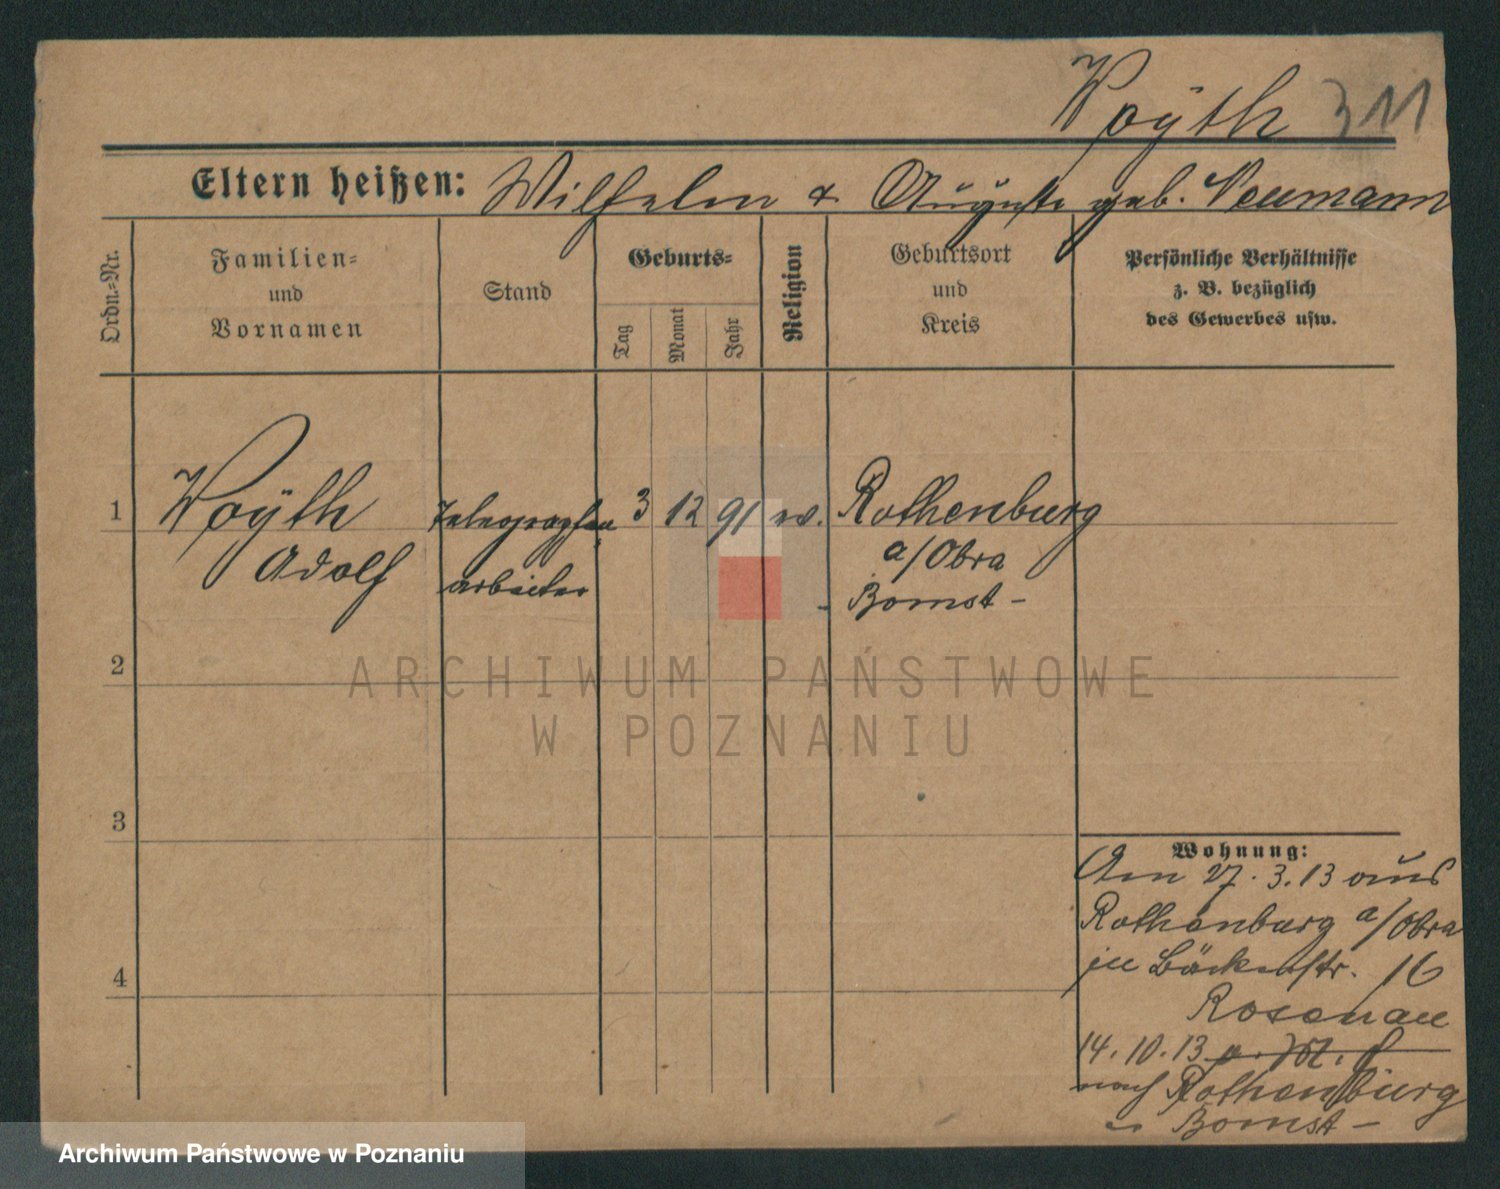 Woÿth 311
Eltern heißen: Wilhelm & Auguste geb. Neumann
Ordn.-Nr.
Familien-
und
Vornamen
Stand
Geburts-
Tag
Monat
Jahr
Religion
Geburtsort
und
Kreis
Persönliche Verhältnisse
z. B. bezüglich
des Gewerbes usw.
1 Woÿth Telegraphen 3 12 91 ev. Rothenburg
Adolf arbeiter a/Obra
Bomst
2
ARCHIWUM PAŃSTWOWE
W POZNANIU
3
Wohnung:
Am 27.3.13 aus
Rothenburg a/Obra
in Bäckerstr. 16
Rosenau
14.10.13
nach Rothenburg
Bomst
4
Archiwum Państwowe w Poznaniu